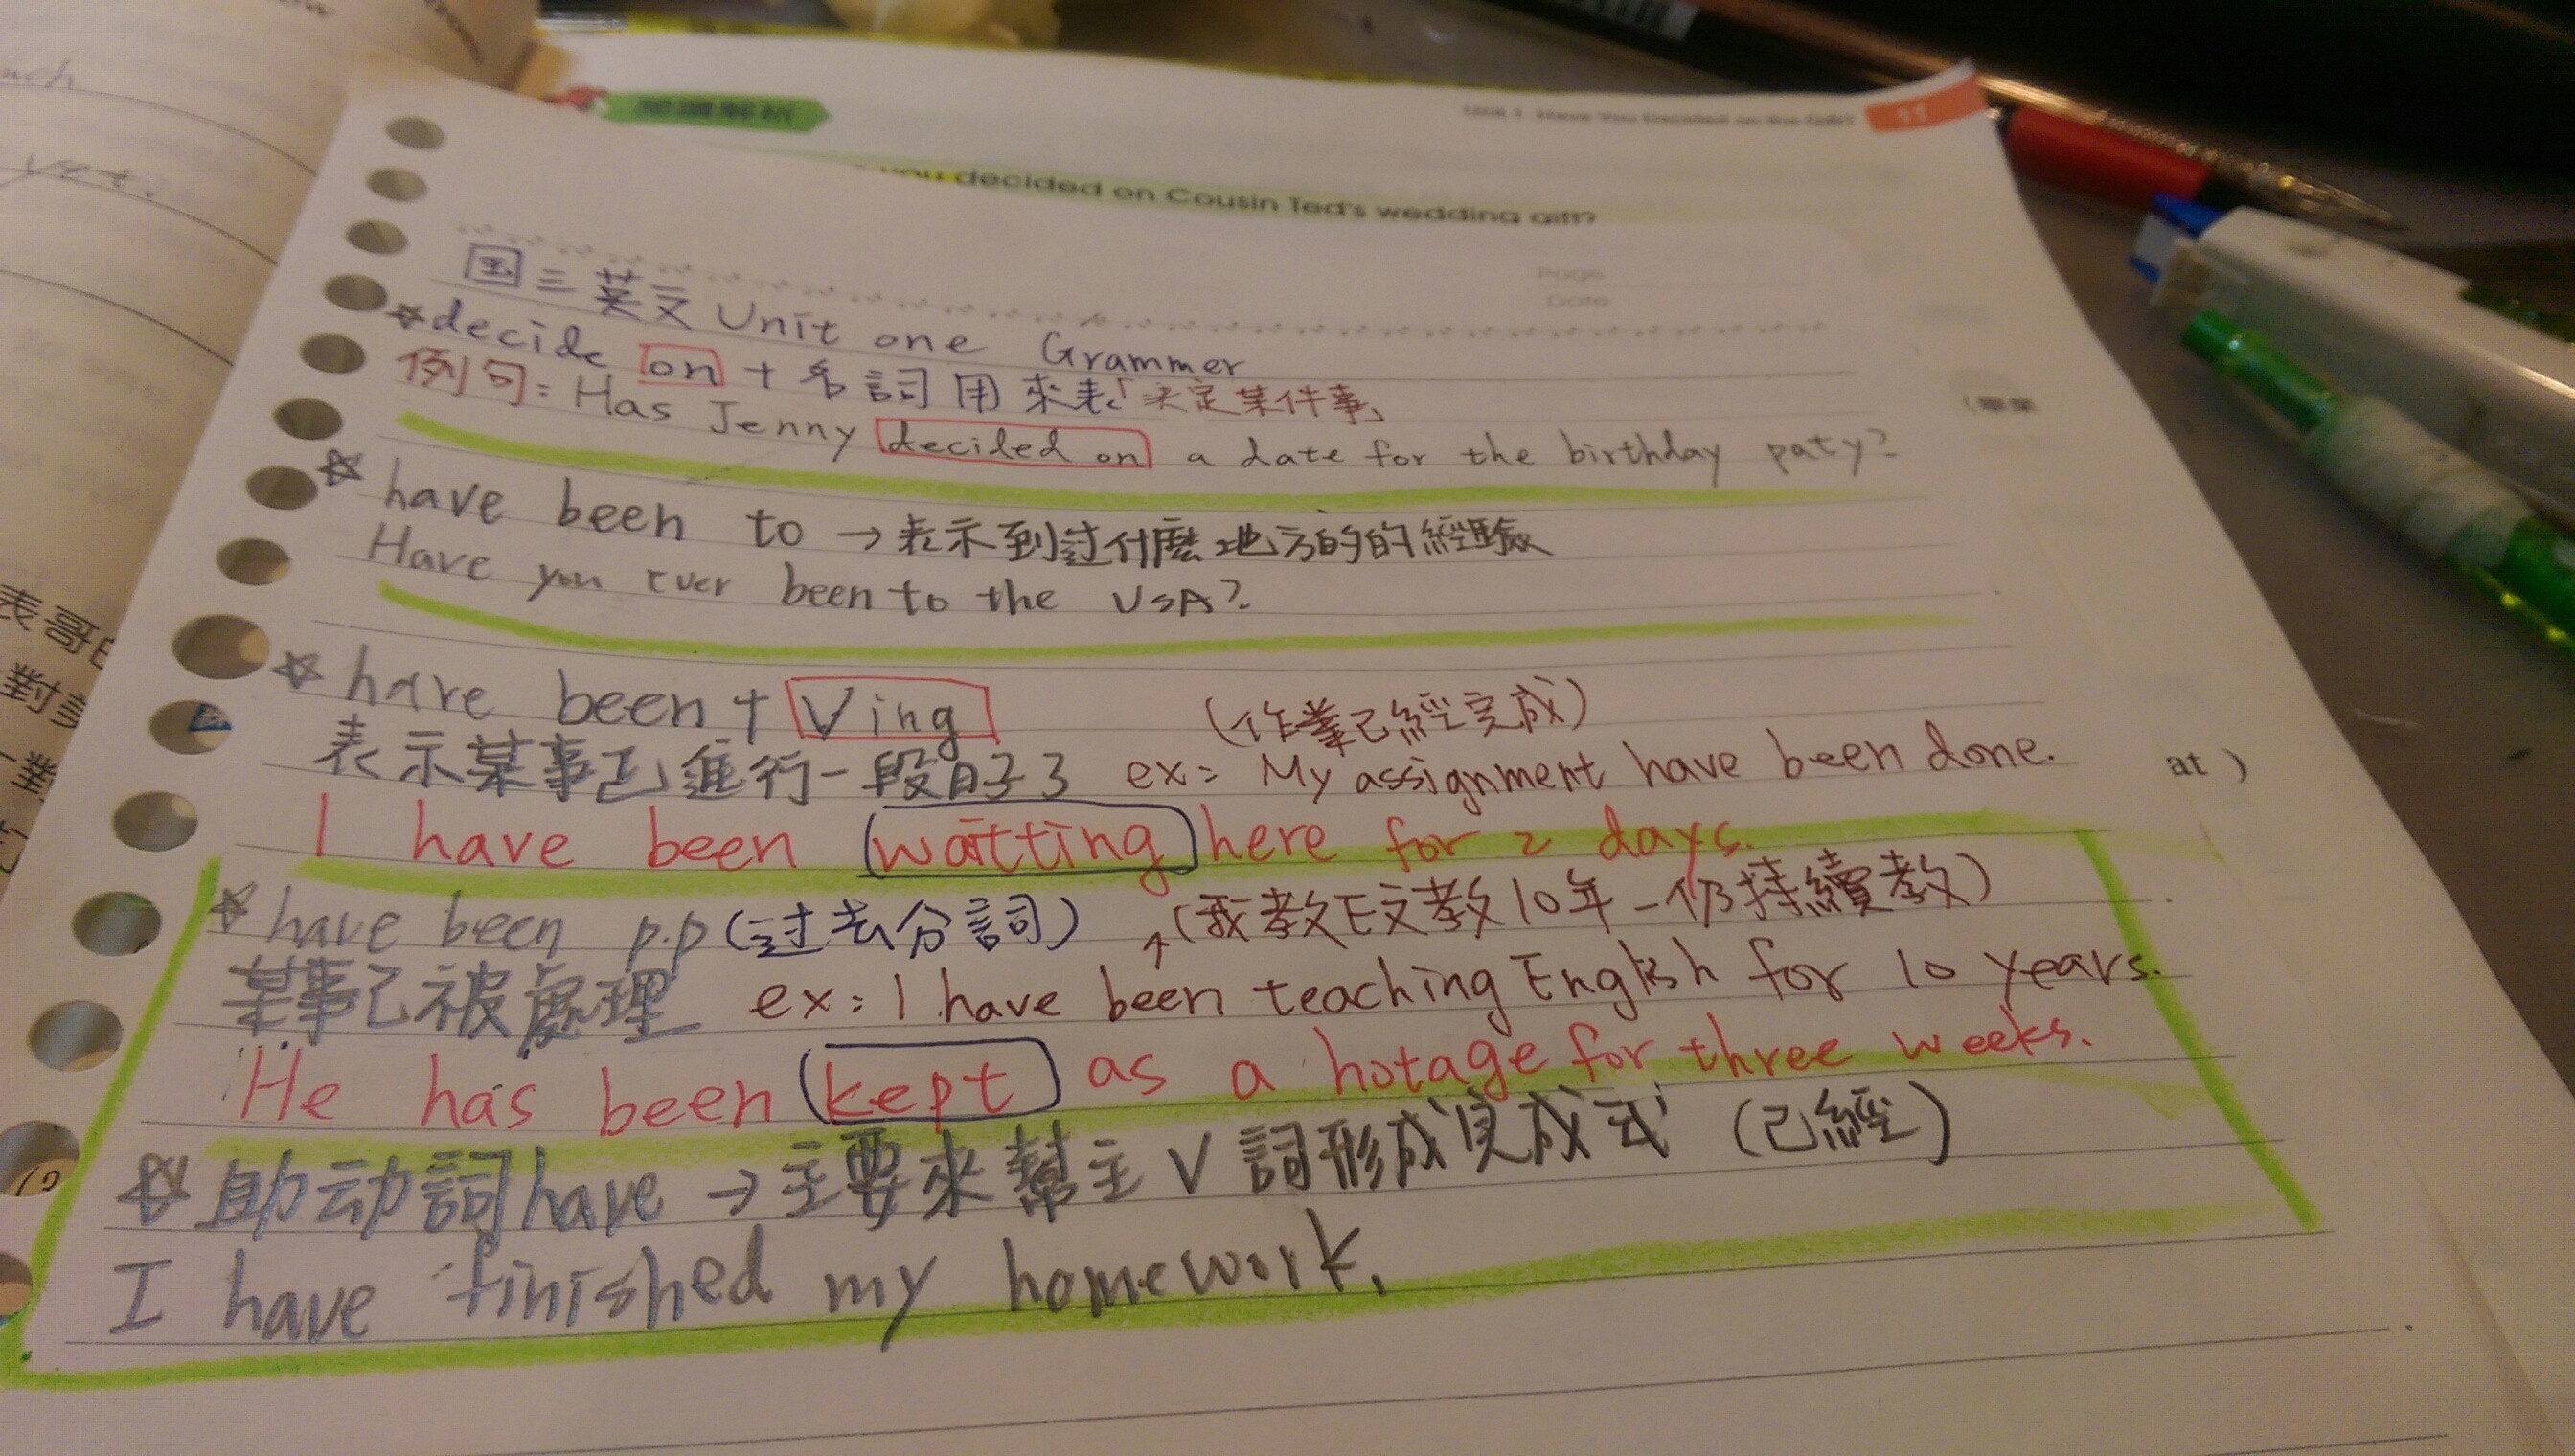 Unit 1 Have You Decided on the Gift? 11
you decided on Cousin Ted's wedding gift?
Page
Date
国三英文 Unit one Grammer
☆decide on + 名詞 用來表「決定某件事」
例句: Has Jenny decided on a date for the birthday paty?
☆ have been to → 表示到过什麼地方的的經驗
Have you ever been to the USA?
☆ have been + Ving
(作業已經完成)
表示某事已進行一段日子了 ex: My assignment have been done.
I have been waitting here for 2 days.
☆have been p.p (过去分詞) ↑(我教E文教10年-仍持續教)
某事已被處理 ex: I have been teaching English for 10 years.
He has been kept as a hotage for three weeks.
☆助动詞have → 主要來幫主V詞形成完成式 (已經)
I have finished my homework.
at )
yet.
表哥
對